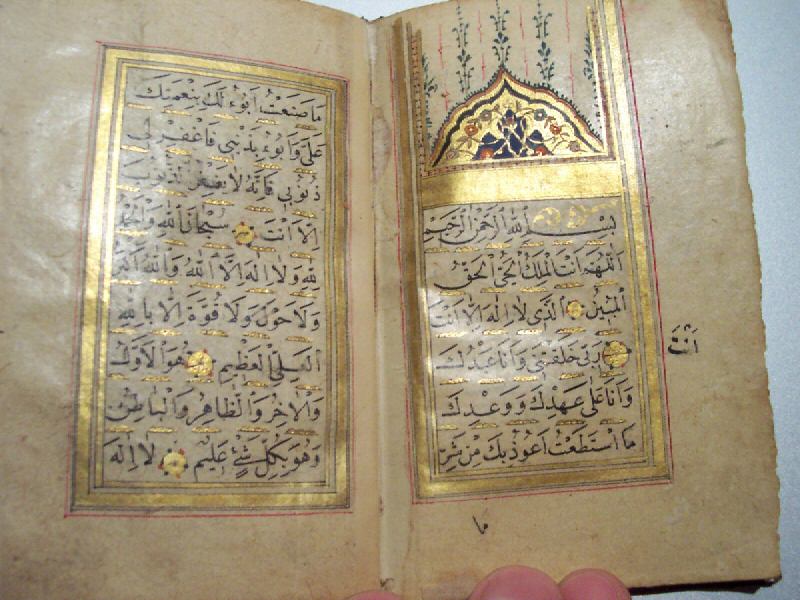 بِسْمِ اللهِ الرَّحْمٰنِ الرَّحِيمِ
اَللّٰهُمَّ اَنْتَ الْمَلِكُ الْحَىُّ الْحَقُّ
الْمُبِينُ الَّذِى لَا اِلٰهَ اِلَّا اَنْتَ
رَبِّى خَلَقْتَنِى وَاَنَا عَبْدُكَ
وَاَنَا عَلٰى عَهْدِكَ وَوَعْدِكَ
مَا اسْتَطَعْتُ اَعُوذُ بِكَ مِنْ شَرِّ
اَنْتَ
مَا
مَا صَنَعْتُ اَبُوءُ لَكَ بِنِعْمَتِكَ
عَلَىَّ وَاَبُوءُ بِذَنْبِى فَاغْفِرْ لِى
ذُنُوبِى فَاِنَّهُ لَا يَغْفِرُ الذُّنُوبَ
اِلَّا اَنْتَ سُبْحَانَ اللهِ وَالْحَمْدُ
لِلّٰهِ وَلَا اِلٰهَ اِلَّا اللهُ وَاللهُ اَكْبَرُ
وَلَا حَوْلَ وَلَا قُوَّةَ اِلَّا بِاللهِ
الْعَلِىِّ الْعَظِيمِ هُوَ الْاَوَّلُ
وَالْاٰخِرُ وَالظَّاهِرُ وَالْبَاطِنُ
وَهُوَ بِكُلِّ شَىْءٍ عَلِيمٌ لَا اِلٰهَ